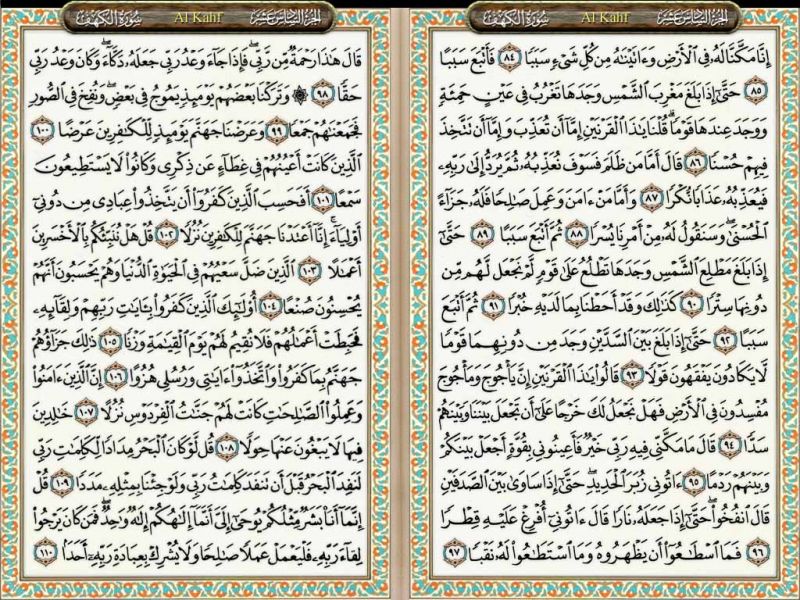 الجزء السادس عشر
Al Kahf
سورة الكهف
إِنَّا مَكَّنَّا لَهُۥ فِى ٱلْأَرْضِ وَءَاتَيْنَٰهُ مِن كُلِّ شَىْءٍ سَبَبًا ٨٤ فَأَتْبَعَ سَبَبًا
٨٥ حَتَّىٰٓ إِذَا بَلَغَ مَغْرِبَ ٱلشَّمْسِ وَجَدَهَا تَغْرُبُ فِى عَيْنٍ حَمِئَةٍ
وَوَجَدَ عِندَهَا قَوْمًا ۗ قُلْنَا يَٰذَا ٱلْقَرْنَيْنِ إِمَّآ أَن تُعَذِّبَ وَإِمَّآ أَن تَتَّخِذَ
فِيهِمْ حُسْنًا ٨٦ قَالَ أَمَّا مَن ظَلَمَ فَسَوْفَ نُعَذِّبُهُۥ ثُمَّ يُرَدُّ إِلَىٰ رَبِّهِۦ
فَيُعَذِّبُهُۥ عَذَابًا نُّكْرًا ٨٧ وَأَمَّا مَنْ ءَامَنَ وَعَمِلَ صَٰلِحًا فَلَهُۥ جَزَآءً
ٱلْحُسْنَىٰ ۖ وَسَنَقُولُ لَهُۥ مِنْ أَمْرِنَا يُسْرًا ٨٨ ثُمَّ أَتْبَعَ سَبَبًا ٨٩ حَتَّىٰٓ
إِذَا بَلَغَ مَطْلِعَ ٱلشَّمْسِ وَجَدَهَا تَطْلُعُ عَلَىٰ قَوْمٍ لَّمْ نَجْعَل لَّهُم مِّن
دُونِهَا سِتْرًا ٩٠ كَذَٰلِكَ وَقَدْ أَحَطْنَا بِمَا لَدَيْهِ خُبْرًا ٩١ ثُمَّ أَتْبَعَ
سَبَبًا ٩٢ حَتَّىٰٓ إِذَا بَلَغَ بَيْنَ ٱلسَّدَّيْنِ وَجَدَ مِن دُونِهِمَا قَوْمًا
لَّا يَكَادُونَ يَفْقَهُونَ قَوْلًا ٩٣ قَالُوا۟ يَٰذَا ٱلْقَرْنَيْنِ إِنَّ يَأْجُوجَ وَمَأْجُوجَ
مُفْسِدُونَ فِى ٱلْأَرْضِ فَهَلْ نَجْعَلُ لَكَ خَرْجًا عَلَىٰٓ أَن تَجْعَلَ بَيْنَنَا وَبَيْنَهُمْ
سَدًّا ٩٤ قَالَ مَا مَكَّنِّى فِيهِ رَبِّى خَيْرٌ فَأَعِينُونِى بِقُوَّةٍ أَجْعَلْ بَيْنَكُمْ
وَبَيْنَهُمْ رَدْمًا ٩٥ ءَاتُونِى زُبَرَ ٱلْحَدِيدِ ۖ حَتَّىٰٓ إِذَا سَاوَىٰ بَيْنَ ٱلصَّدَفَيْنِ
قَالَ ٱنفُخُوا۟ ۖ حَتَّىٰٓ إِذَا جَعَلَهُۥ نَارًا قَالَ ءَاتُونِىٓ أُفْرِغْ عَلَيْهِ قِطْرًا
٩٦ فَمَا ٱسْطَٰعُوٓا۟ أَن يَظْهَرُوهُ وَمَا ٱسْتَطَٰعُوا۟ لَهُۥ نَقْبًا ٩٧
الجزء السادس عشر
Al Kahf
سورة الكهف
قَالَ هَٰذَا رَحْمَةٌ مِّن رَّبِّى ۖ فَإِذَا جَآءَ وَعْدُ رَبِّى جَعَلَهُۥ دَكَّآءَ ۖ وَكَانَ وَعْدُ رَبِّى
حَقًّا ٩٨ ۞ وَتَرَكْنَا بَعْضَهُمْ يَوْمَئِذٍ يَمُوجُ فِى بَعْضٍ ۖ وَنُفِخَ فِى ٱلصُّورِ
فَجَمَعْنَٰهُمْ جَمْعًا ٩٩ وَعَرَضْنَا جَهَنَّمَ يَوْمَئِذٍ لِّلْكَٰفِرِينَ عَرْضًا ١٠٠
ٱلَّذِينَ كَانَتْ أَعْيُنُهُمْ فِى غِطَآءٍ عَن ذِكْرِى وَكَانُوا۟ لَا يَسْتَطِيعُونَ
سَمْعًا ١٠١ أَفَحَسِبَ ٱلَّذِينَ كَفَرُوٓا۟ أَن يَتَّخِذُوا۟ عِبَادِى مِن دُونِىٓ
أَوْلِيَآءَ ۚ إِنَّآ أَعْتَدْنَا جَهَنَّمَ لِلْكَٰفِرِينَ نُزُلًا ١٠٢ قُلْ هَلْ نُنَبِّئُكُم بِٱلْأَخْسَرِينَ
أَعْمَٰلًا ١٠٣ ٱلَّذِينَ ضَلَّ سَعْيُهُمْ فِى ٱلْحَيَوٰةِ ٱلدُّنْيَا وَهُمْ يَحْسَبُونَ أَنَّهُمْ
يُحْسِنُونَ صُنْعًا ١٠٤ أُو۟لَٰٓئِكَ ٱلَّذِينَ كَفَرُوا۟ بِـَٔايَٰتِ رَبِّهِمْ وَلِقَآئِهِۦ
فَحَبِطَتْ أَعْمَٰلُهُمْ فَلَا نُقِيمُ لَهُمْ يَوْمَ ٱلْقِيَٰمَةِ وَزْنًا ١٠٥ ذَٰلِكَ جَزَآؤُهُمْ
جَهَنَّمُ بِمَا كَفَرُوا۟ وَٱتَّخَذُوٓا۟ ءَايَٰتِى وَرُسُلِى هُزُوًا ١٠٦ إِنَّ ٱلَّذِينَ ءَامَنُوا۟
وَعَمِلُوا۟ ٱلصَّٰلِحَٰتِ كَانَتْ لَهُمْ جَنَّٰتُ ٱلْفِرْدَوْسِ نُزُلًا ١٠٧ خَٰلِدِينَ
فِيهَا لَا يَبْغُونَ عَنْهَا حِوَلًا ١٠٨ قُل لَّوْ كَانَ ٱلْبَحْرُ مِدَادًا لِّكَلِمَٰتِ رَبِّى
لَنَفِدَ ٱلْبَحْرُ قَبْلَ أَن تَنفَدَ كَلِمَٰتُ رَبِّى وَلَوْ جِئْنَا بِمِثْلِهِۦ مَدَدًا ١٠٩ قُلْ
إِنَّمَآ أَنَا۠ بَشَرٌ مِّثْلُكُمْ يُوحَىٰٓ إِلَىَّ أَنَّمَآ إِلَٰهُكُمْ إِلَٰهٌ وَٰحِدٌ ۖ فَمَن كَانَ يَرْجُوا۟
لِقَآءَ رَبِّهِۦ فَلْيَعْمَلْ عَمَلًا صَٰلِحًا وَلَا يُشْرِكْ بِعِبَادَةِ رَبِّهِۦٓ أَحَدًۢا ١١٠